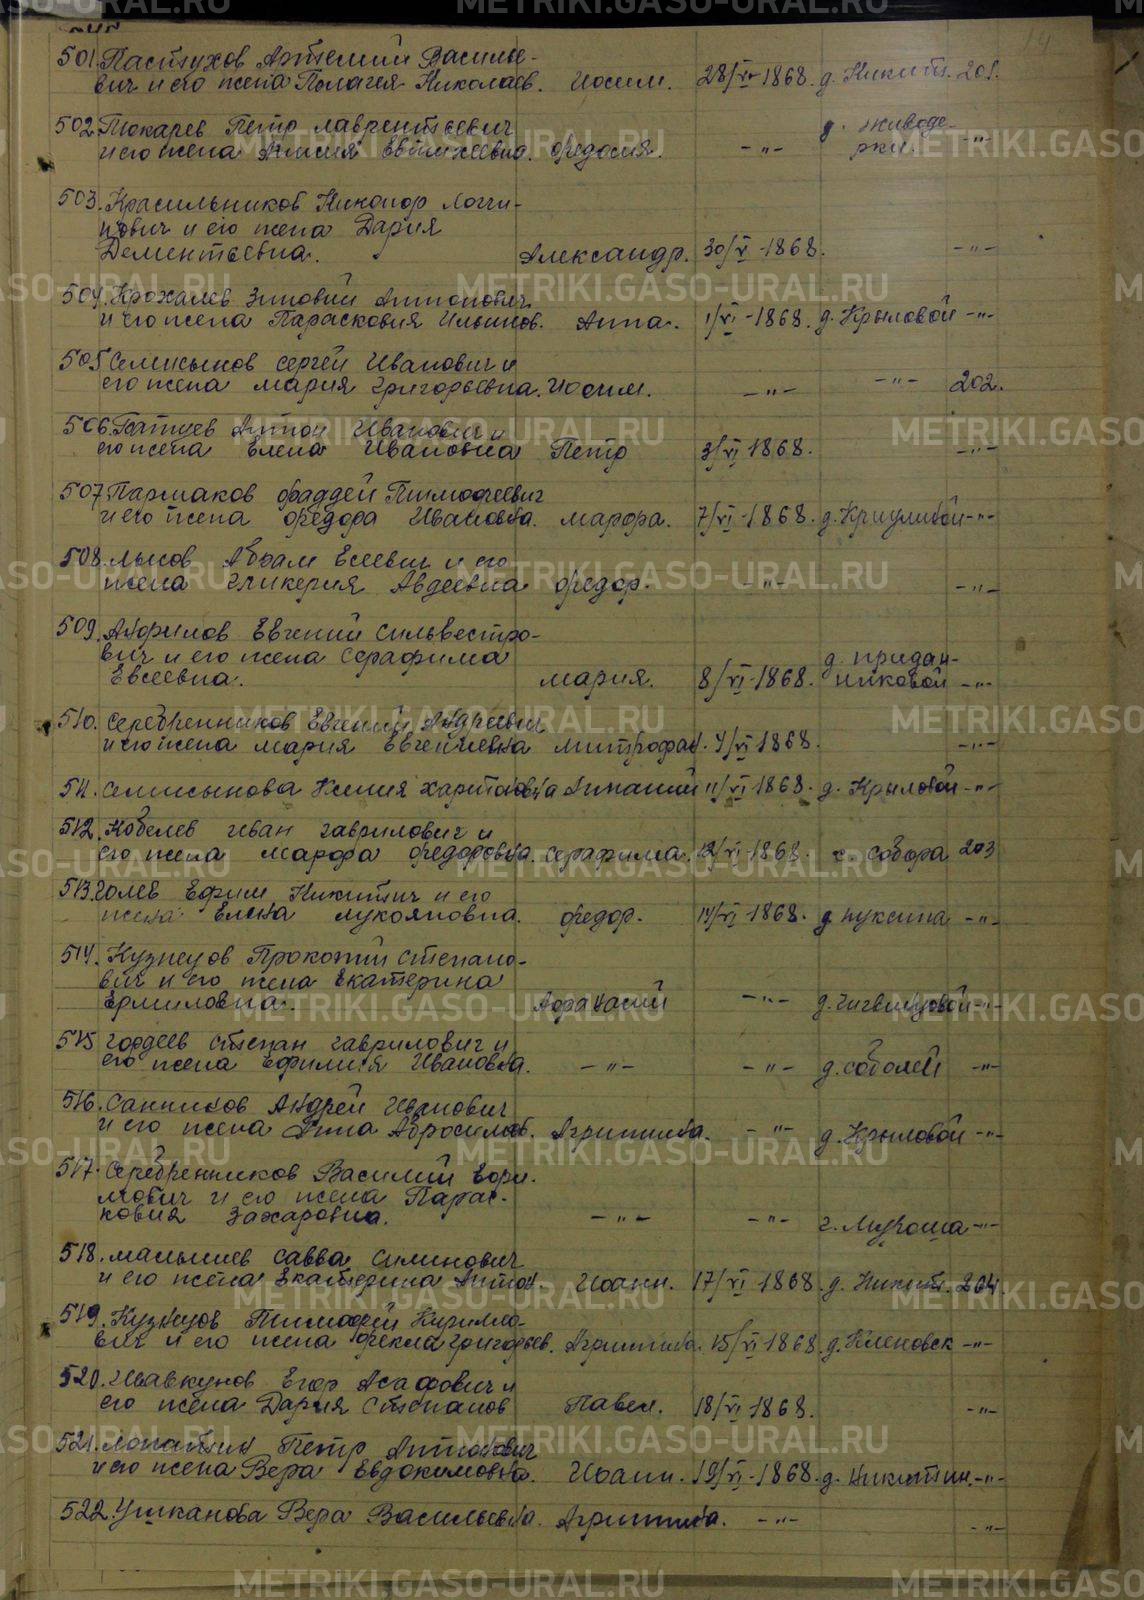 501. Пастухов Артемий Василье-
вич и его жена Пелагея Николаев. Иосим. 28/V-1868. д. Никит. 201.
502. Токарев Петр Лаврентьевич д. Живоде-
и его жена Евтихеевна. Федосия. -"- рки. -"-
503. Красильников Никанор Логги-
нович и его жена Дария
Дементьевна. Александр. 30/V-1868. -"-
504. Крохалев Зиновий Антонович
и его жена Парасковия Ильинов. Анна. 1/VI-1868. д. Крыловой -"-
505 Семисынов Сергей Иванович и
его жена Мария Григорьевна. Иосим. -"- -"- 202.
506. Иванович и
его жена Елена Ивановна Петр 3/VI 1868. -"-
507. Пармаков Фаддей Тимофеевич
и его жена Федора Ивановна. Марфа. 7/VI-1868. д. Криулиной -"-
508. Лысов Абрам Есеевич и его
жена Гликерия Авдеевна Федор. -"- -"-
509. Анфилов Евгений Сильвестро-
вич и его жена Серафима д. Придан-
Евсеевна. Мария. 8/VI-1868. никовой -"-
510. Серебренников Евгений Андреевич
и его жена Мария Евгениевна Митрофан. 4/VI 1868. -"-
511. Семисынова Ксения Харитоновна 11/VI-1868. д. Крыловой -"-
512. Кобелев Иван Гаврилович и
его жена Марфа Федоровна. Серафима. 12/VI-1868. с. Собора 203
513. Голев Ефим Никитич и его
жена Елена Лукояновна. Федор. 14/VI-1868. д. -"-
514. Кузнецов Прокопий Степано-
вич и его жена Екатерина
Ермиловна. Афанасий -"- д. Чигвинцовой -"-
515 Гордеев Степан Гаврилович и
его жена Ефимия Ивановна. -"- -"- д. Соболей -"-
516. Санников Андрей Иванович
и его жена Анна Абросимов. Агрипина. -"- д. Крыловой -"-
517. Серебренников Василий Ефи-
мович и его жена Парас-
ковия Захаровна. -"- -"- -"-
518. Малышев Савва Симинович
и его жена Екатерина Антон. Иоанн. 17/VI 1868 д. Никит. 204.
519. Кузнецов Тимофей Кирилло-
вич и его жена Фекла Григорьев. Агрипина. 15/VI 1868. д. Кленовск -"-
520. Шавкунов Егор Асафович и
его жена Дария Степанов Павел. 18/VI 1868. -"-
521. Лопатин Петр Антонович
и его жена Вера Евдокимовна. Иоанн. 19/VI-1868. д. Никитин. -"-
522. Ушканова Вера Васильевна. Агрипина. -"- -"-
METRIKI.GASO-URAL.RU